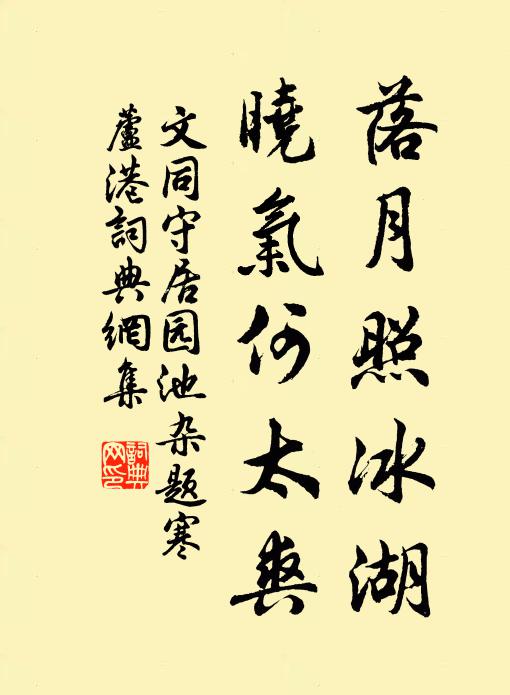 落月照冰湖
曉氣何太爽
文同守居园池杂题寒
蘆港詞典網集
詞典網印